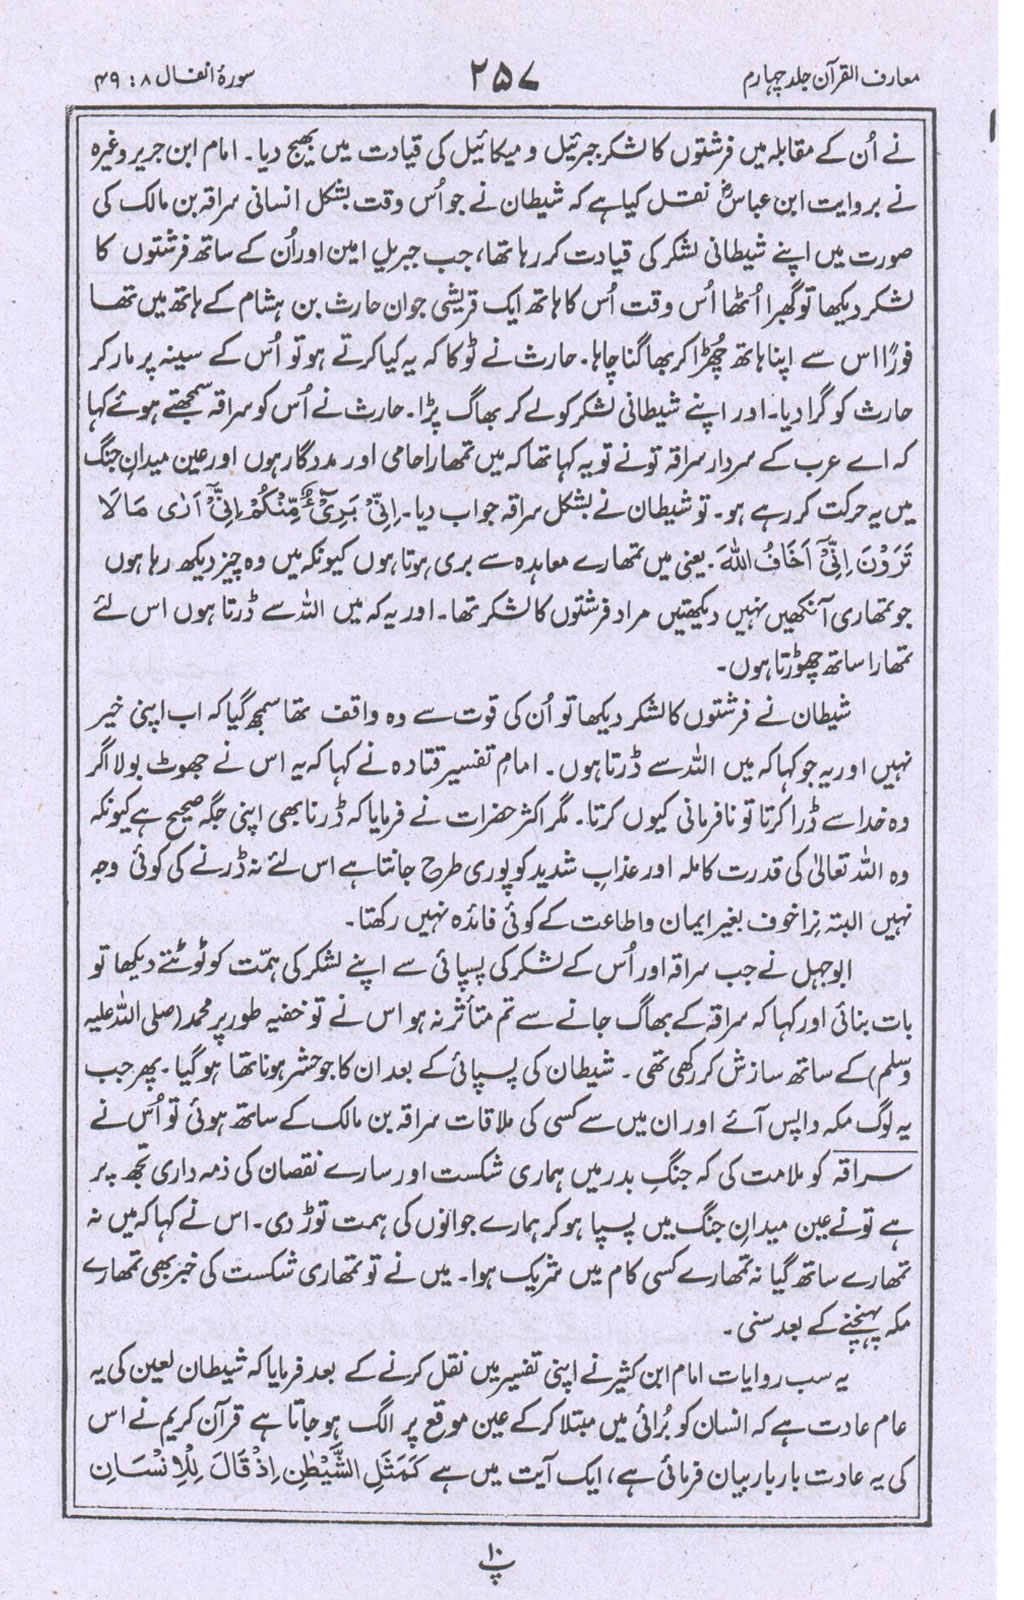 معارف القرآن جلد چہارم
۲۵۷
سورۂ انفال ۸ : ۴۹
نے اُن کے مقابلہ میں فرشتوں کا لشکر جبرئیل و میکائیل کی قیادت میں بھیج دیا۔ امام ابن جریر وغیرہ
نے بروایت ابن عباسؓ نقل کیا ہے کہ شیطان نے جو اُس وقت بشکل انسانی سراقہ بن مالک کی
صورت میں اپنے شیطانی لشکر کی قیادت کر رہا تھا، جب جبریلِ امین اور اُن کے ساتھ فرشتوں کا
لشکر دیکھا تو گھبرا اُٹھا اُس وقت اُس کا ہاتھ ایک قریشی جوان حارث بن ہشام کے ہاتھ میں تھا
فورًا اس سے اپنا ہاتھ چُھڑا کر بھاگنا چاہا۔ حارث نے ٹوکا کہ یہ کیا کرتے ہو تو اُس کے سینہ پر مار کر
حارث کو گرا دیا۔ اور اپنے شیطانی لشکر کو لے کر بھاگ پڑا۔ حارث نے اُس کو سراقہ سمجھتے ہوئے کہا
کہ اے عرب کے سردار سراقہ تو نے تو یہ کہا تھا کہ میں تمھارا حامی اور مددگار ہوں اور عین میدانِ جنگ
میں یہ حرکت کر رہے ہو۔ تو شیطان نے بشکل سراقہ جواب دیا۔ اِنِّیْ بَرِیْٓءٌ مِّنْکُمْ اِنِّیْٓ اَرٰی مَا لَا
تَرَوْنَ اِنِّیْٓ اَخَافُ اللّٰهَ۔ یعنی میں تمھارے معاہدہ سے بری ہوتا ہوں کیونکہ میں وہ چیز دیکھ رہا ہوں
جو تمھاری آنکھیں نہیں دیکھتیں مراد فرشتوں کا لشکر تھا۔ اور یہ کہ میں اللہ سے ڈرتا ہوں اس لئے
تمھارا ساتھ چھوڑتا ہوں۔
شیطان نے فرشتوں کا لشکر دیکھا تو اُن کی قوت سے وہ واقف تھا سمجھ گیا کہ اب اپنی خیر
نہیں اور یہ جو کہا کہ میں اللہ سے ڈرتا ہوں۔ امامِ تفسیر قتادہ نے کہا کہ یہ اس نے جھوٹ بولا اگر
وہ خدا سے ڈرا کرتا تو نافرمانی کیوں کرتا۔ مگر اکثر حضرات نے فرمایا کہ ڈرنا بھی اپنی جگہ صحیح ہے کیونکہ
وہ اللہ تعالیٰ کی قدرت کاملہ اور عذابِ شدید کو پوری طرح جانتا ہے اس لئے نہ ڈرنے کی کوئی وجہ
نہیں البتہ نِرا خوف بغیر ایمان و اطاعت کے کوئی فائدہ نہیں رکھتا۔
ابوجہل نے جب سراقہ اور اُس کے لشکر کی پسپائی سے اپنے لشکر کی ہمّت کو ٹوٹتے دیکھا تو
بات بنائی اور کہا کہ سراقہ کے بھاگ جانے سے تم متأثر نہ ہو اس نے تو خفیہ طور پر محمد (صلی اللہ علیہ
وسلم) کے ساتھ سازش کر رکھی تھی۔ شیطان کی پسپائی کے بعد ان کا جو حشر ہونا تھا ہو گیا۔ پھر جب
یہ لوگ مکہ واپس آئے اور ان میں سے کسی کی ملاقات سراقہ بن مالک کے ساتھ ہوئی تو اُس نے
سراقہ کو ملامت کی کہ جنگِ بدر میں ہماری شکست اور سارے نقصان کی ذمہ داری تجھ پر
ہے تو نے عین میدانِ جنگ میں پسپا ہو کر ہمارے جوانوں کی ہمت توڑ دی۔ اس نے کہا کہ میں نہ
تمھارے ساتھ گیا نہ تمھارے کسی کام میں شریک ہوا۔ میں نے تو تمھاری شکست کی خبر بھی تمھارے
مکہ پہنچنے کے بعد سنی۔
یہ سب روایات امام ابن کثیرؒ نے اپنی تفسیر میں نقل کرنے کے بعد فرمایا کہ شیطان لعین کی یہ
عام عادت ہے کہ انسان کو بُرائی میں مبتلا کر کے عین موقع پر الگ ہو جاتا ہے قرآن کریم نے اس
کی یہ عادت بار بار بیان فرمائی ہے، ایک آیت میں ہے کَمَثَلِ الشَّیْطٰنِ اِذْ قَالَ لِلْاِنْسَانِ
پ۱۰